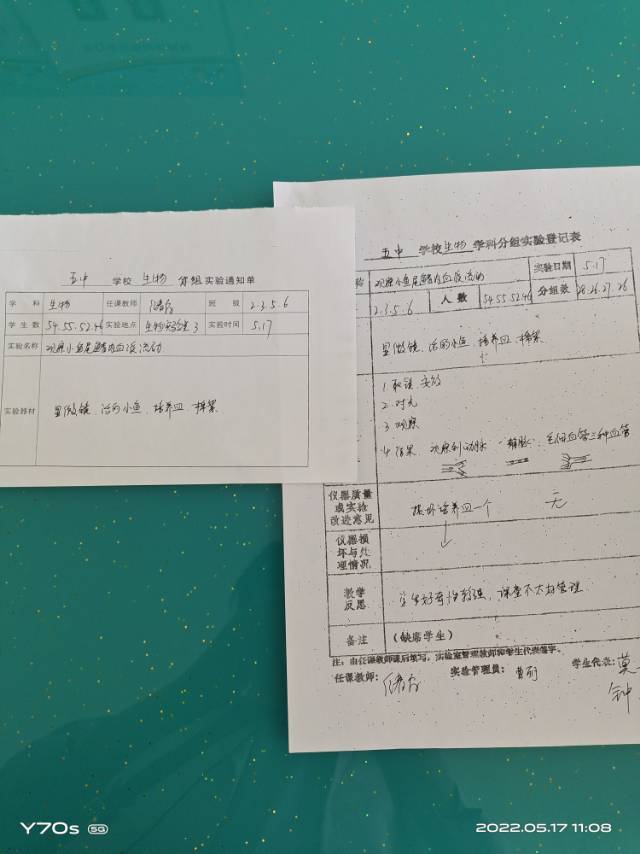 五中 学校 生物 分组实验通知单
学 科 生物 任课教师 班 级 2.3.5.6
学生数 54.55.52.46 实验地点 生物实验室3 实验时间 5.17
实验名称 观察小鱼尾鳍内血液流动
实验器材 显微镜、活的小鱼、培养皿、棉絮
五中 学校生物 学科分组实验登记表
称 观察小鱼尾鳍内血液流动 实验日期 5.17
2.3.5.6 人数 54.55.52.46 分组数 28.26.27.26
显微镜、活的小鱼、培养皿、棉絮
1 取镜 安放
2 对光
3 观察
4 结果 观察到动脉 静脉 毛细血管三种血管
仪器质量或实验改进意见 无
仪器损坏与处理情况 损坏培养皿一个
教学反思 学生好奇性较强,课堂不太好管理
备注 (缺席学生)
注:由任课教师课后填写,实验室管理教师和学生代表签字。
任课教师: 实验管理员: 曹丽 学生代表: 莫
钟
Y70s 5G
2022.05.17 11:08